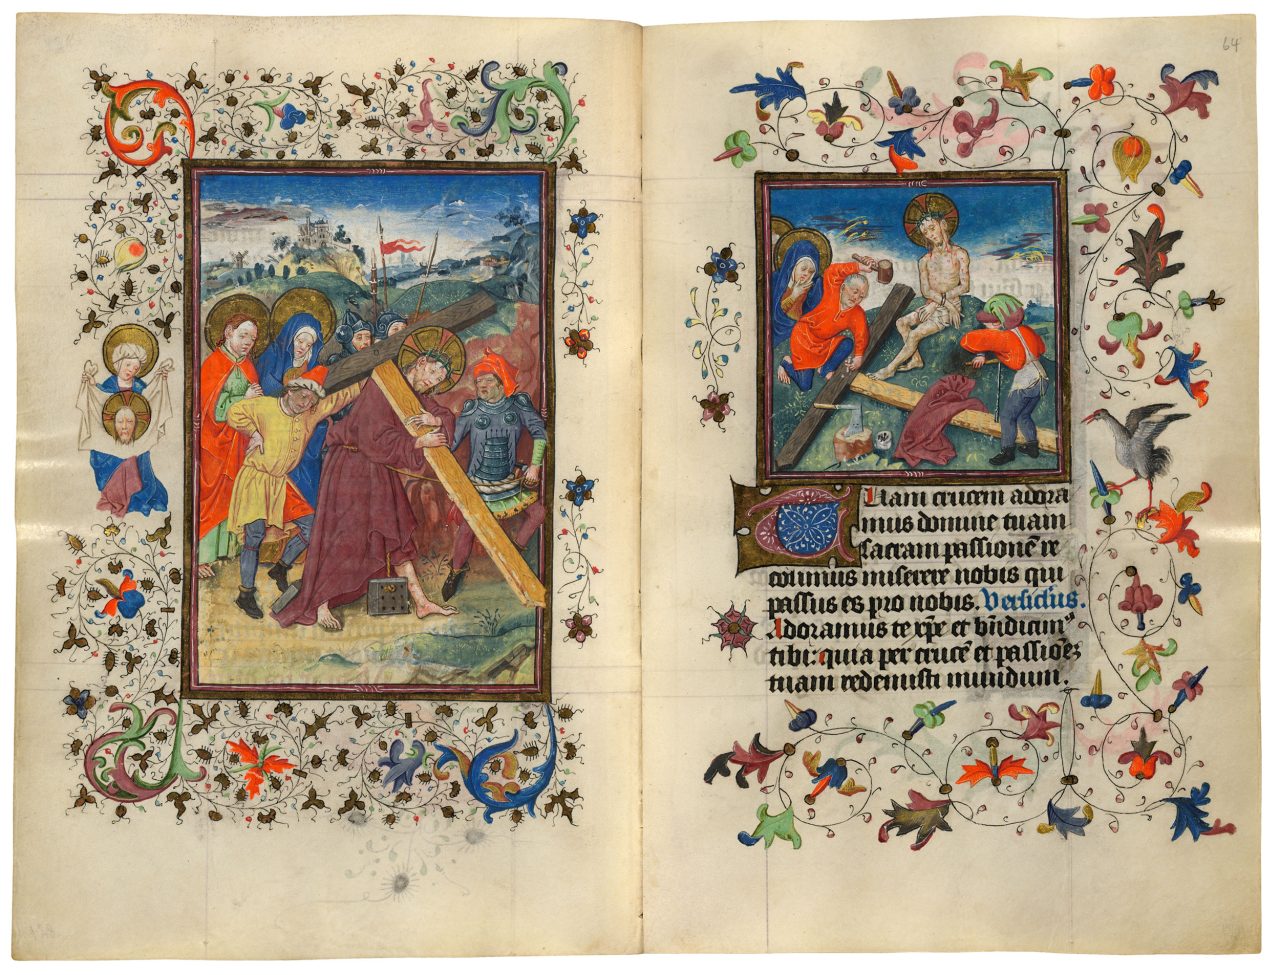 64
Tuam crucem adora
mus domine tuam
sacram passionē re
colimus miserere nobis qui
passus es pro nobis. Versiclus.
Adoramus te xp̄e et bn̄dicimꝰ
tibi: quia per crucē et passionē
tuam redemisti mundum.